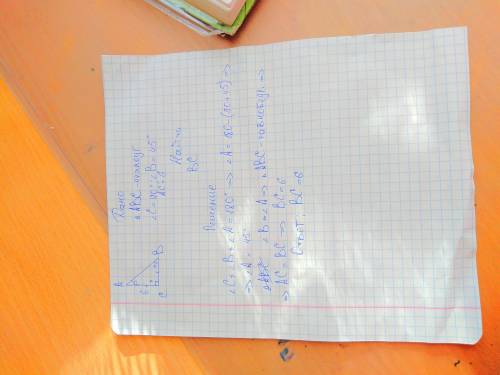 Дано
△ABC - прямоуг.
∠C = 90°; ∠B = 45°
AC = 6
Найти
BC
A
6
C
45°
B
Решение
∠C + ∠B + ∠A = 180° ⇒ ∠A = 180 - (90 + 45) ⇒
⇒ ∠A = 45°
△ABC ∠B = ∠A ⇒ △ABC - равнобедр. ⇒
⇒ AC = BC ⇒ BC = 6
Ответ: BC = 6